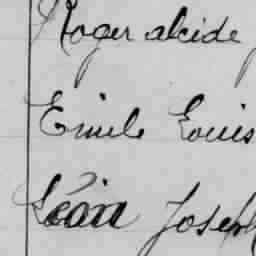 Roger alcide
Emile Louis
Léon Joseph